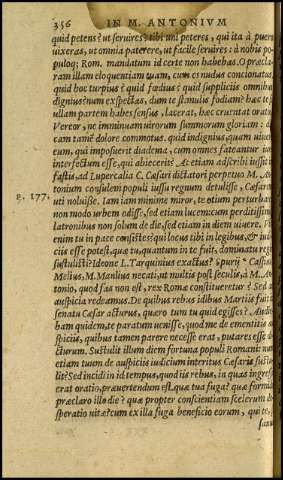 356 IN M. ANTONIVM
quid petens? ut seruires? tibi uni peteres, qui ita à puero
uixeras, ut omnia paterere, ut facile seruires: à nobis po-
puloq; Rom. mandatum id certe non habebas. O præcla-
ram illam eloquentiam tuam, cum es nudus concionatus,
quid hoc turpius? quid fœdius? quid supplicijs omnibus
dignius? num expectas, dum te stimulis fodiam? hæc te,
ullam partem habes sensus, lacerat, hæc cruentat oratio.
Vereor, ne imminuam uirorum summorum gloriam: di-
cam tamē dolore commotus. quid indignius, quàm uiuere
eum, qui imposuerit diadema, cum omnes fateantur iure
interfectum esse, qui abiecerit? At etiam adscribi iußit in
fastis, ad Lupercalia C. Cæsari dictatori perpetuo M. An-
tonium consulem populi iussu regnum detulisse, Cæsarem
g. 177. uti noluisse. Iam iam minime miror, te otium perturbare,
non modo urbem odisse, sed etiam lucem: cum perditissimis
latronibus non solum de die, sed etiam in diem uiuere. Vbi
enim tu in pace consistes? qui locus tibi in legibus, & iudi-
cijs esse potest, quæ tu, quantum in te fuit, dominatu regio
sustulisti? Ideone L. Tarquinius exactus? Spurij Cassius
Melius, M. Manlius necati, ut multis post seculis, à M. An-
tonio, quod fas non est, rex Romæ constitueretur? Sed ad
auspicia redeamus. De quibus rebus idibus Martijs fuit in
senatu Cæsar acturus, quæro tum tu quid egisses? Audie-
bam quidem, te paratum uenisse, quod me de ementitis au-
spicijs, quibus tamen parere necesse erat, putares esse di-
cturum. Sustulit illum diem fortuna populi Romani: num
etiam tuum de auspicijs iudicium interitus Cæsaris sustu-
lit? Sed incidi in id tempus, quod ijs rebus, in quas ingressa
erat oratio, præuertendum est. quæ tua fuga? quæ formido
præclaro illo die? quæ propter conscientiam scelerum de-
speratio uitæ? cum ex illa fuga beneficio eorum, qui te,